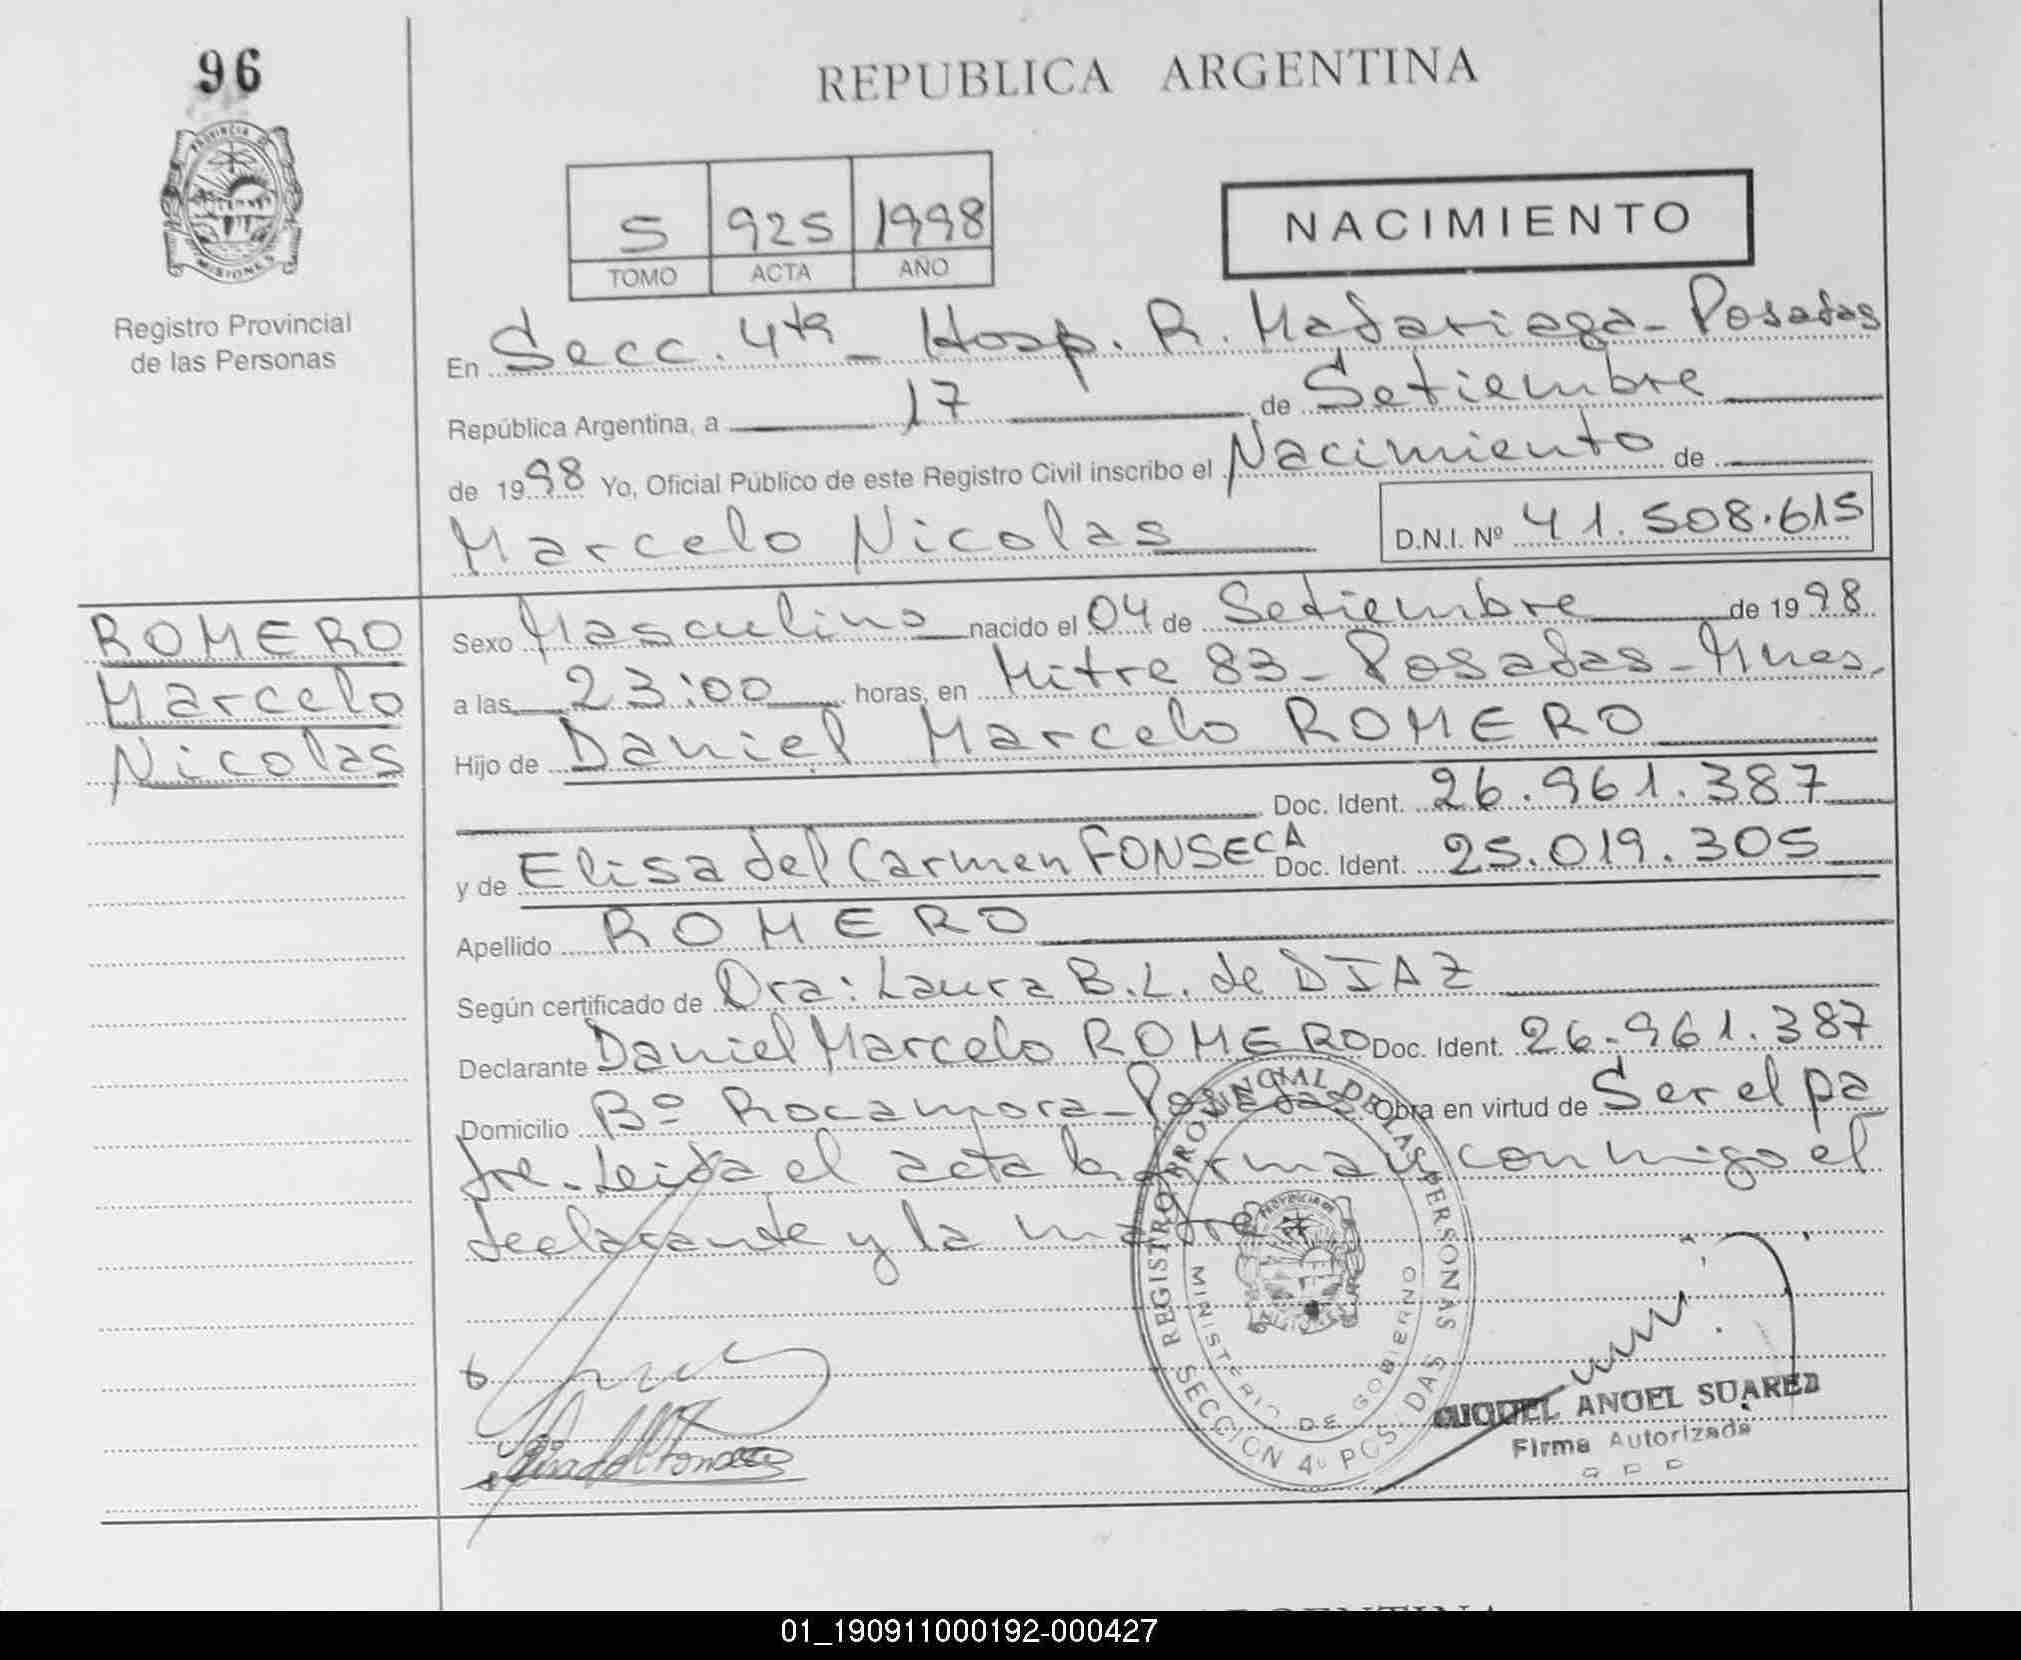 96
REPUBLICA ARGENTINA
PROVINCIA DE MISIONES
Registro Provincial
de las Personas
5 925 1998
TOMO ACTA AÑO
NACIMIENTO
En Secc. 4ta - Hosp. R. Madariaga - Posadas
República Argentina, a 17 de Setiembre
de 1998 Yo, Oficial Público de este Registro Civil inscribo el Nacimiento de
Marcelo Nicolas D.N.I. Nº 41.508.615
ROMERO
Marcelo
Nicolas
Sexo Masculino nacido el 04 de Setiembre de 1998
a las 23:00 horas, en Mitre 83 - Posadas - Mnes.
Hijo de Daniel Marcelo ROMERO
Doc. Ident. 26.961.387
y de Elisa del Carmen FONSECA Doc. Ident. 25.019.305
Apellido ROMERO
Según certificado de Dra: Laura B. L. de DIAZ
Declarante Daniel Marcelo ROMERO Doc. Ident. 26.961.387
Domicilio Bº Rocamora - Posadas Obra en virtud de Ser el pa
dre. Leida el acta la firman conmigo el
declarante y la madre
REGISTRO PROVINCIAL DE LAS PERSONAS
MINISTERIO DE GOBIERNO
SECCION 4º POSADAS
MIGUEL ANGEL SUAREZ
Firma Autorizada
01_190911000192-000427